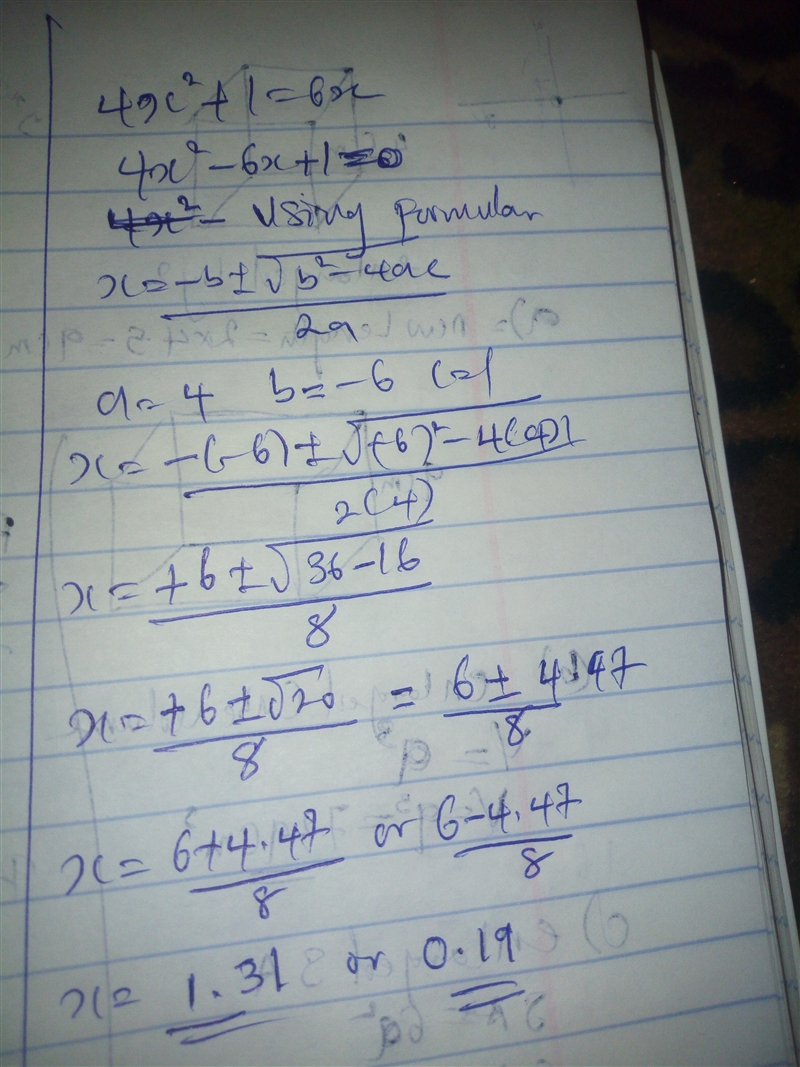 4x²+1=6x
4x²-6x+1=0
4x²- Using formular
x=-b±√b²-4ac
2a
a=4 b=-6 c=1
x=-(-6)±√(-6)²-4(4)1
2(4)
x=+6±√36-16
8
x=+6±√20 = 6±4.47
8 8
x=6+4.47 or 6-4.47
8 8
x= 1.31 or 0.19